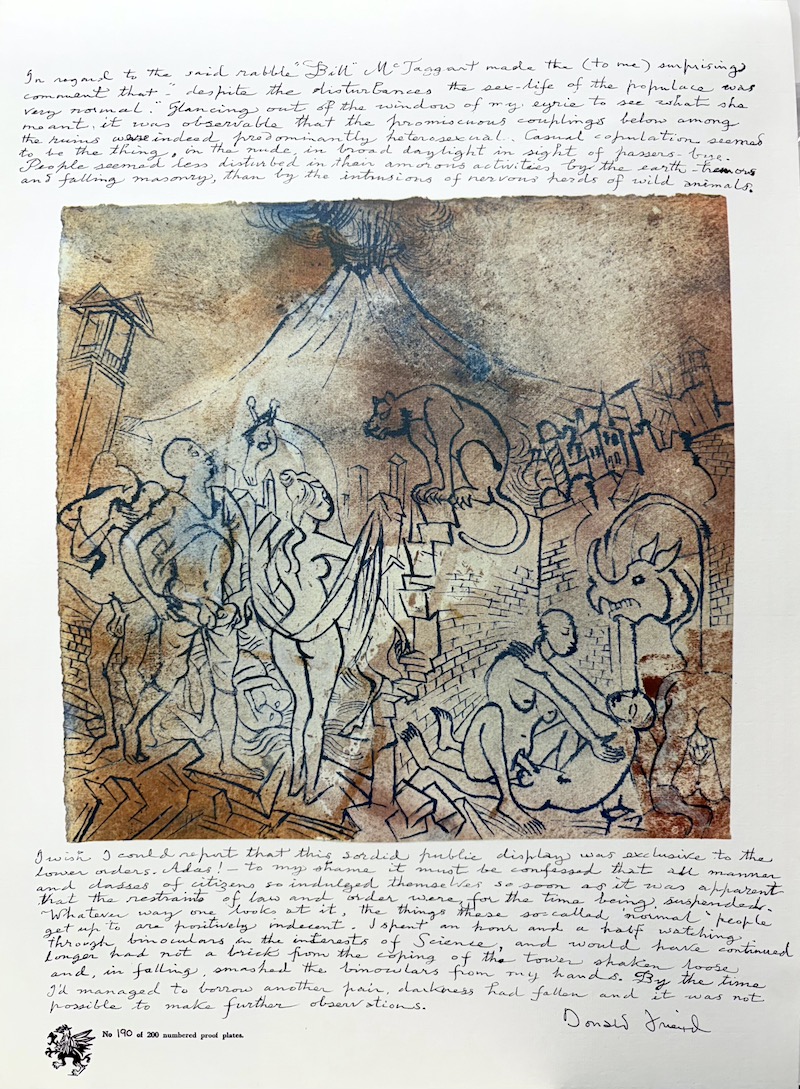 In regard to the said rabble "Bill" McTaggart made the (to me) surprising
comment that "despite the disturbances the sex-life of the populace was
very normal." Glancing out of the window of my eyrie to see what she
meant, it was observable that the promiscuous couplings below among
the ruins were indeed predominantly heterosexual. Casual copulation seemed
to be the thing, in the nude, in broad daylight in sight of passers-bye.
People seemed less disturbed in their amorous activities by the earth-tremors
and falling masonry, than by the intrusions of nervous herds of wild animals.
I wish I could report that this sordid public display was exclusive to the
lower orders. Alas! — to my shame it must be confessed that all manner
and classes of citizens so indulged themselves so soon as it was apparent
that the restraints of law and order were, for the time being, suspended.
Whatever way one looks at it, the things these so-called "normal" people
get up to are positively indecent. I spent an hour and a half watching
through binoculars in the interests of Science, and would have continued
longer had not a brick from the coping of the tower shaken loose
and, in falling, smashed the binoculars from my hands. By the time
I'd managed to borrow another pair, darkness had fallen and it was not
possible to make further observations.
Donald Friend
No 190 of 200 numbered proof plates.